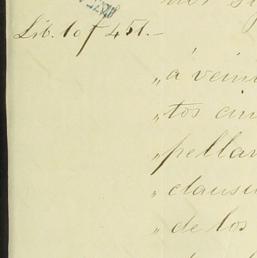 Lib. 10 f 451.-
„á vein
„tos cin
„pellan
„clausu
„de los